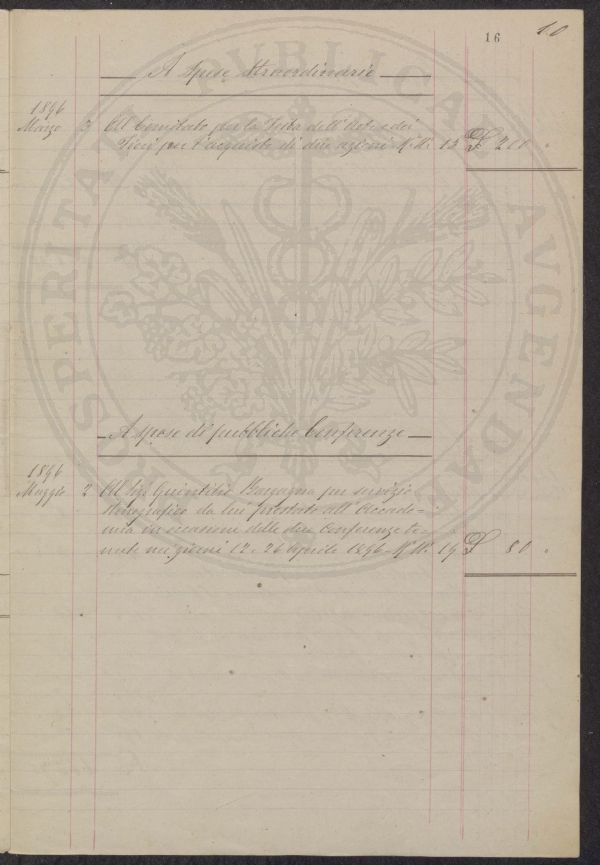 16 10
A Spese Straordinarie
1896
Marzo 3 Al Comitato per la Festa dell'Arte e dei
Fiori per l'acquisto di due azioni M. N. 13 £ 200 "
A spese di pubbliche Conferenze
1896
Maggio 2 Al Sig. Quintilio Bargagna per servizio
stenografico da lui prestato all'Accade=
mia in occasione delle due Conferenze te=
nute nei giorni 12 e 26 Aprile 1896 - M. N. 19 £ 80 "
PROSPERITATI PUBLICAE AVGENDAE